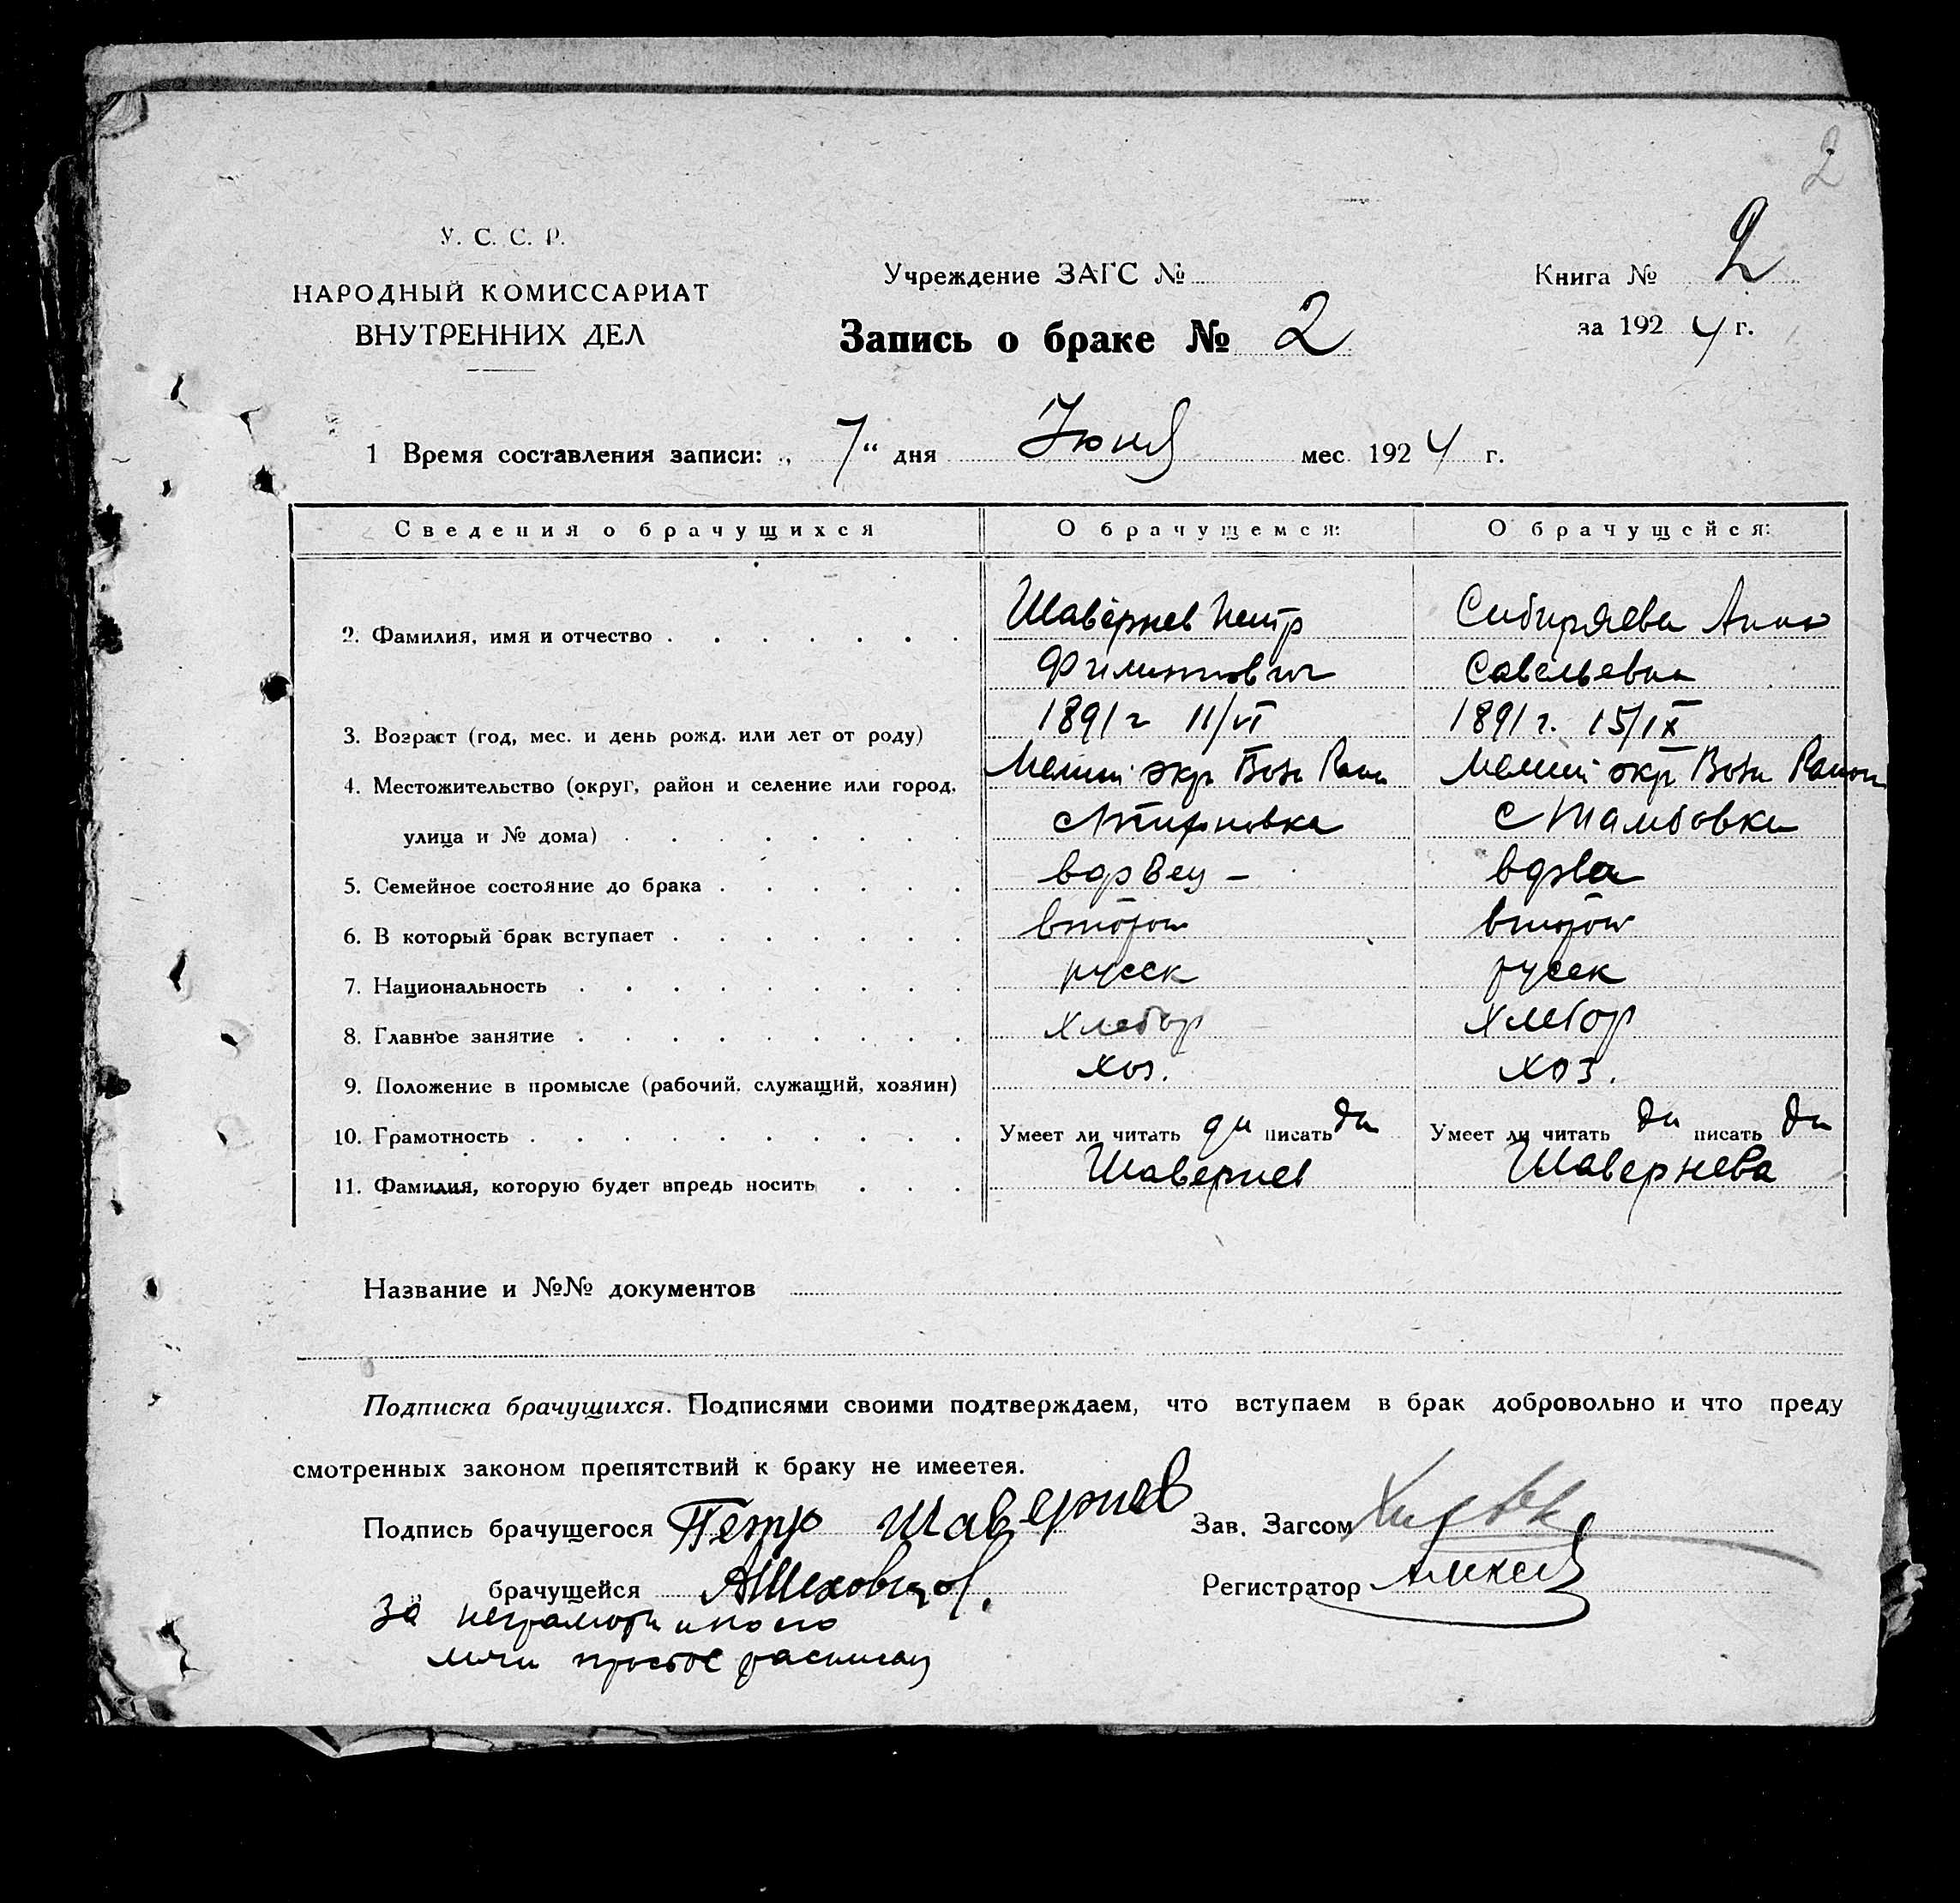 2
У. С. С. Р.
НАРОДНЫЙ КОМИССАРИАТ
ВНУТРЕННИХ ДЕЛ
Учреждение ЗАГС №
Запись о браке № 2
Книга № 2
за 1924 г.
1 Время составления записи: „ 7“ дня Июня мес. 1924 г.
Сведения о брачущихся О брачущемся: О брачущейся:
2. Фамилия, имя и отчество Шавернев Петр Сибиряева Анна
Филиппович Савельевна
3. Возраст (год, мес. и день рожд. или лет от роду) 1891 г 11/VI 1891 г. 15/IX
4. Местожительство (округ, район и селение или город, Мелит окр Возн Мелит окр Возн Район
улица и № дома) с Тамбовка
5. Семейное состояние до брака вдовец – вдова
6. В который брак вступает второй второй
7. Национальность русск русск
8. Главное занятие хлебор хлебор
9. Положение в промысле (рабочий, служащий, хозяин) хоз. хоз.
10. Грамотность Умеет ли читать да писать да Умеет ли читать да писать да
11. Фамилия, которую будет впредь носить Шавернев Шавернева
Название и №№ документов
Подписка брачущихся. Подписями своими подтверждаем, что вступаем в брак добровольно и что преду
смотренных законом препятствий к браку не имеетея.
Подпись брачущегося Петр Шавернев Зав. Загсом
брачущейся АШеховцов. Регистратор
За неграмотн